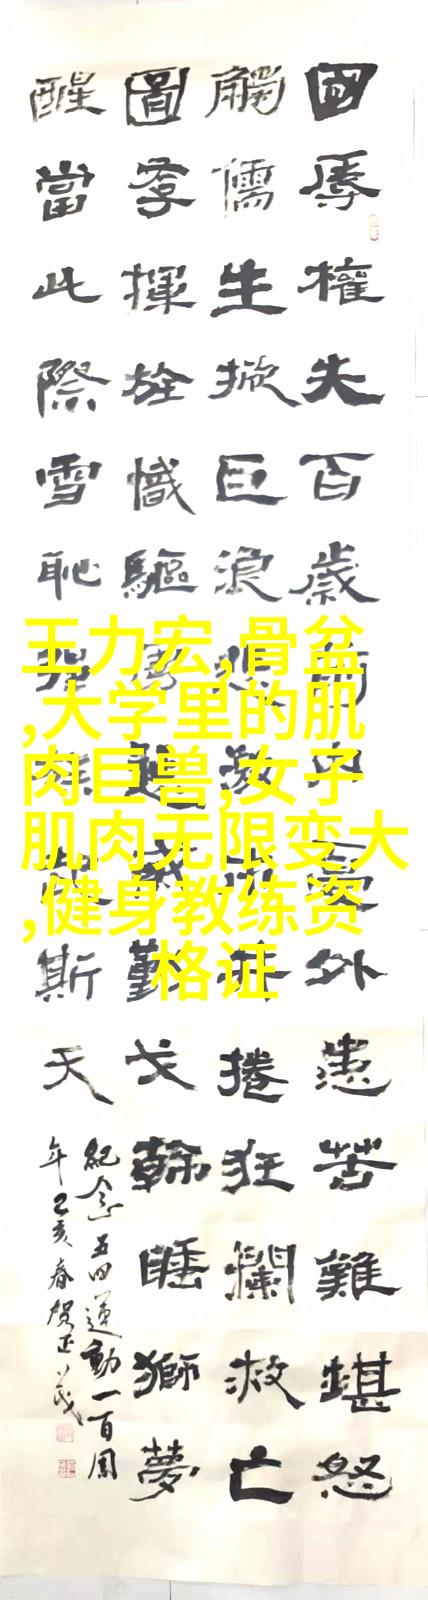 國辱權失百歲內憂外患苦難堪怒
觸儒生掀巨浪救捲狂瀾救亡
圖存揮旌幟驅戈睡獅夢
醒當此際雪恥斯天
紀念五四運動一百周
年己亥春賀正
王力宏,骨盆
,大学里的肌
肉巨兽,女子
肌肉无限变大
,健身教练资
格证